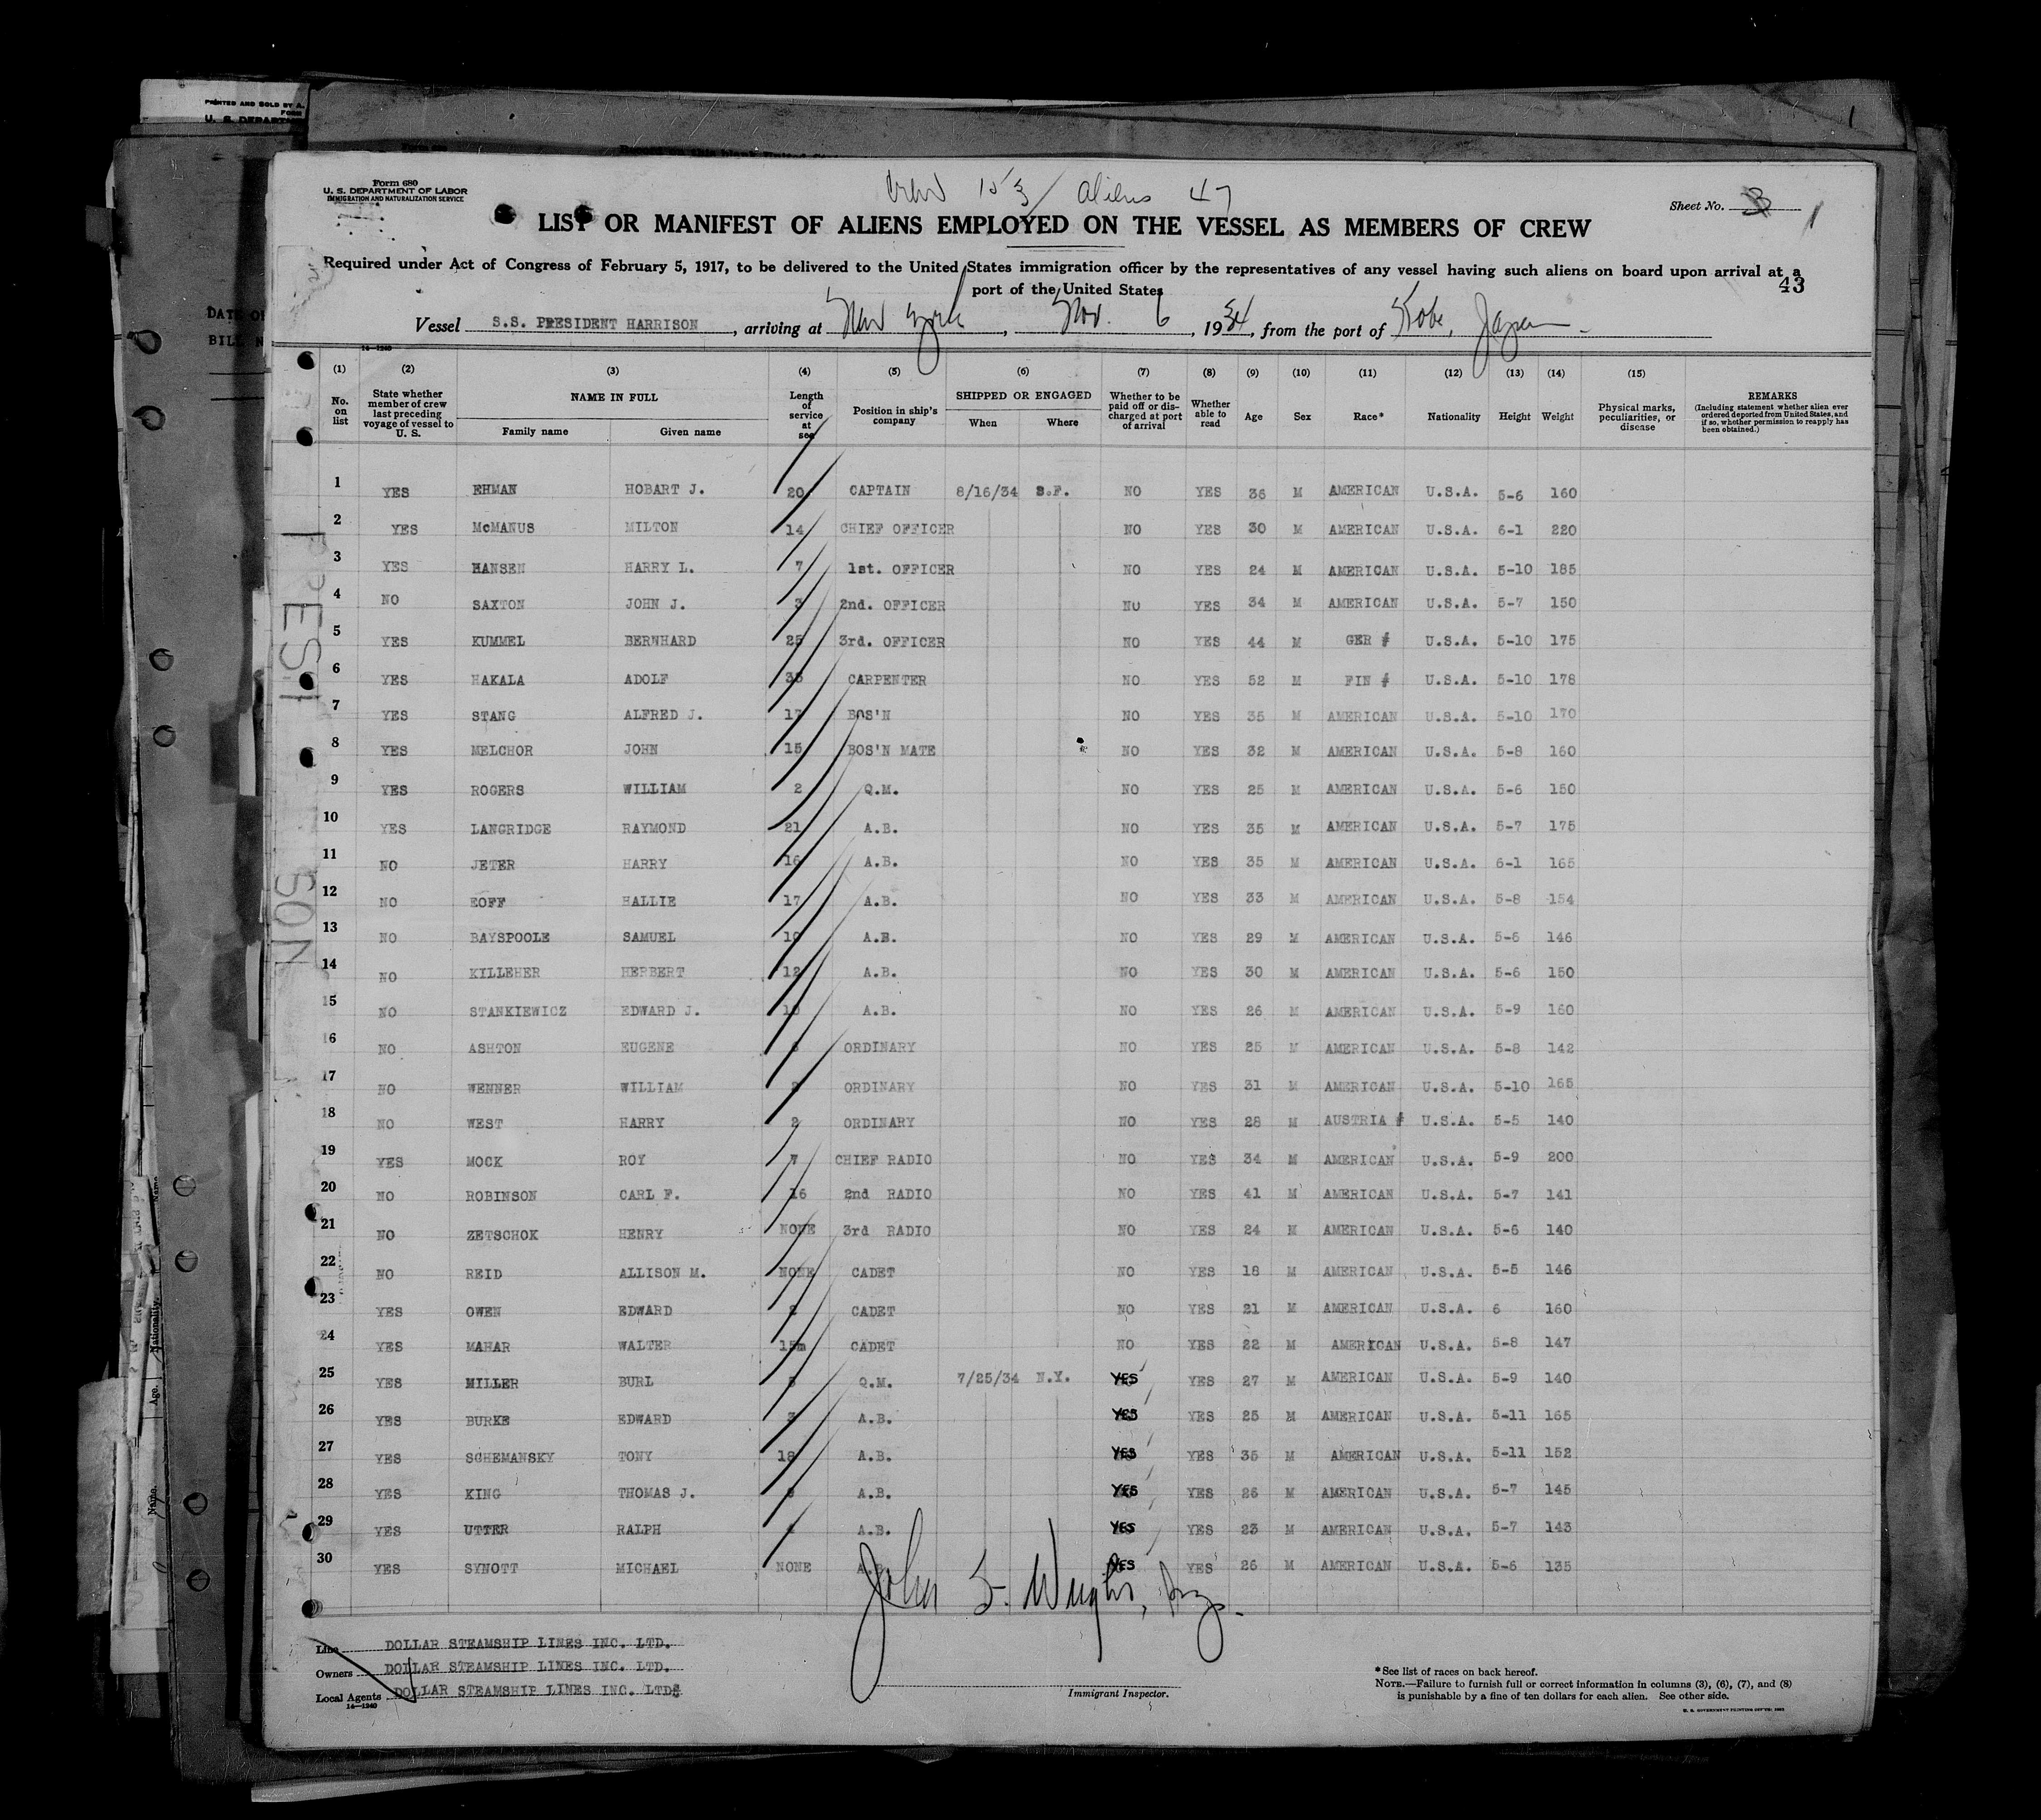 PRINTED AND SOLD BY A.
FORM
U. S. DEPARTM
DATE OF
BILL N
Form 680
U. S. DEPARTMENT OF LABOR
IMMIGRATION AND NATURALIZATION SERVICE
Crew 153 / aliens 47
Sheet No. 3 1
LIST OR MANIFEST OF ALIENS EMPLOYED ON THE VESSEL AS MEMBERS OF CREW
Required under Act of Congress of February 5, 1917, to be delivered to the United States immigration officer by the representatives of any vessel having such aliens on board upon arrival at a
port of the United States
43
Vessel S.S. PRESIDENT HARRISON, arriving at New York, Nov. 6, 1934, from the port of Kobe, Japan
14—1240
(1) (2) (3) (4) (5) (6) (7) (8) (9) (10) (11) (12) (13) (14) (15)
No. on list State whether member of crew last preceding voyage of vessel to U. S. NAME IN FULL Family name Given name Length of service at sea Position in ship's company SHIPPED OR ENGAGED When Where Whether to be paid off or discharged at port of arrival Whether able to read Age Sex Race* Nationality Height Weight Physical marks, peculiarities, or disease REMARKS (Including statement whether alien ever ordered deported from United States, and if so, whether permission to reapply has been obtained.)
1 YES EHMAN HOBART J. 20 CAPTAIN 8/16/34 S.F. NO YES 36 M AMERICAN U.S.A. 5-6 160
2 YES McMANUS MILTON 14 CHIEF OFFICER NO YES 30 M AMERICAN U.S.A. 6-1 220
3 YES HANSEN HARRY L. 7 1st. OFFICER NO YES 24 M AMERICAN U.S.A. 5-10 185
4 NO SAXTON JOHN J. 3 2nd. OFFICER NO YES 34 M AMERICAN U.S.A. 5-7 150
5 YES KUMMEL BERNHARD 25 3rd. OFFICER NO YES 44 M GER # U.S.A. 5-10 175
6 YES HAKALA ADOLF 35 CARPENTER NO YES 52 M FIN # U.S.A. 5-10 178
7 YES STANG ALFRED J. 17 BOS'N NO YES 35 M AMERICAN U.S.A. 5-10 170
8 YES MELCHOR JOHN 15 BOS'N MATE NO YES 32 M AMERICAN U.S.A. 5-8 160
9 YES ROGERS WILLIAM 2 Q.M. NO YES 25 M AMERICAN U.S.A. 5-6 150
10 YES LANGRIDGE RAYMOND 21 A.B. NO YES 35 M AMERICAN U.S.A. 5-7 175
11 NO JETER HARRY 16 A.B. NO YES 35 M AMERICAN U.S.A. 6-1 165
12 NO EOFF HALLIE 17 A.B. NO YES 33 M AMERICAN U.S.A. 5-8 154
13 NO BAYSPOOLE SAMUEL 10 A.B. NO YES 29 M AMERICAN U.S.A. 5-6 146
14 NO KILLEHER HERBERT 12 A.B. NO YES 30 M AMERICAN U.S.A. 5-6 150
15 NO STANKIEWICZ EDWARD J. 10 A.B. NO YES 26 M AMERICAN U.S.A. 5-9 160
16 NO ASHTON EUGENE ORDINARY NO YES 25 M AMERICAN U.S.A. 5-8 142
17 NO WENNER WILLIAM ORDINARY NO YES 31 M AMERICAN U.S.A. 5-10 165
18 NO WEST HARRY 2 ORDINARY NO YES 28 M AUSTRIA # U.S.A. 5-5 140
19 YES MOCK ROY 7 CHIEF RADIO NO YES 34 M AMERICAN U.S.A. 5-9 200
20 NO ROBINSON CARL F. 16 2nd RADIO NO YES 41 M AMERICAN U.S.A. 5-7 141
21 NO ZETSCHOK HENRY NONE 3rd RADIO NO YES 24 M AMERICAN U.S.A. 5-6 140
22 NO REID ALLISON M. NONE CADET NO YES 18 M AMERICAN U.S.A. 5-5 146
23 YES OWEN EDWARD 2 CADET NO YES 21 M AMERICAN U.S.A. 6 160
24 YES MAHAR WALTER 15m CADET NO YES 22 M AMERICAN U.S.A. 5-8 147
25 YES MILLER BURL Q.M. 7/25/34 N.Y. YES YES 27 M AMERICAN U.S.A. 5-9 140
26 YES BURKE EDWARD 3 A.B. YES YES 25 M AMERICAN U.S.A. 5-11 165
27 YES SCHEMANSKY TONY 18 A.B. YES YES 35 M AMERICAN U.S.A. 5-11 152
28 YES KING THOMAS J. A.B. YES YES 26 M AMERICAN U.S.A. 5-7 145
29 YES UTTER RALPH A.B. YES YES 23 M AMERICAN U.S.A. 5-7 143
30 YES SYNOTT MICHAEL NONE A.B. YES YES 26 M AMERICAN U.S.A. 5-6 135
Line DOLLAR STEAMSHIP LINES INC. LTD.
Owners DOLLAR STEAMSHIP LINES INC. LTD.
Local Agents DOLLAR STEAMSHIP LINES INC. LTD.
14—1240
Immigrant Inspector.
*See list of races on back hereof.
NOTE.—Failure to furnish full or correct information in columns (3), (6), (7), and (8)
is punishable by a fine of ten dollars for each alien. See other side.